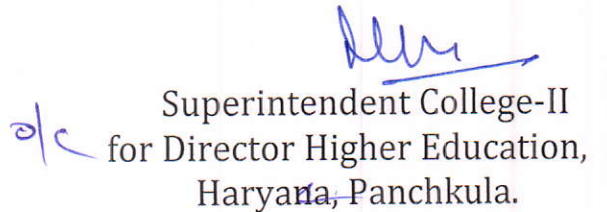 Superintendent College-II
o/c for Director Higher Education,
Haryana, Panchkula.